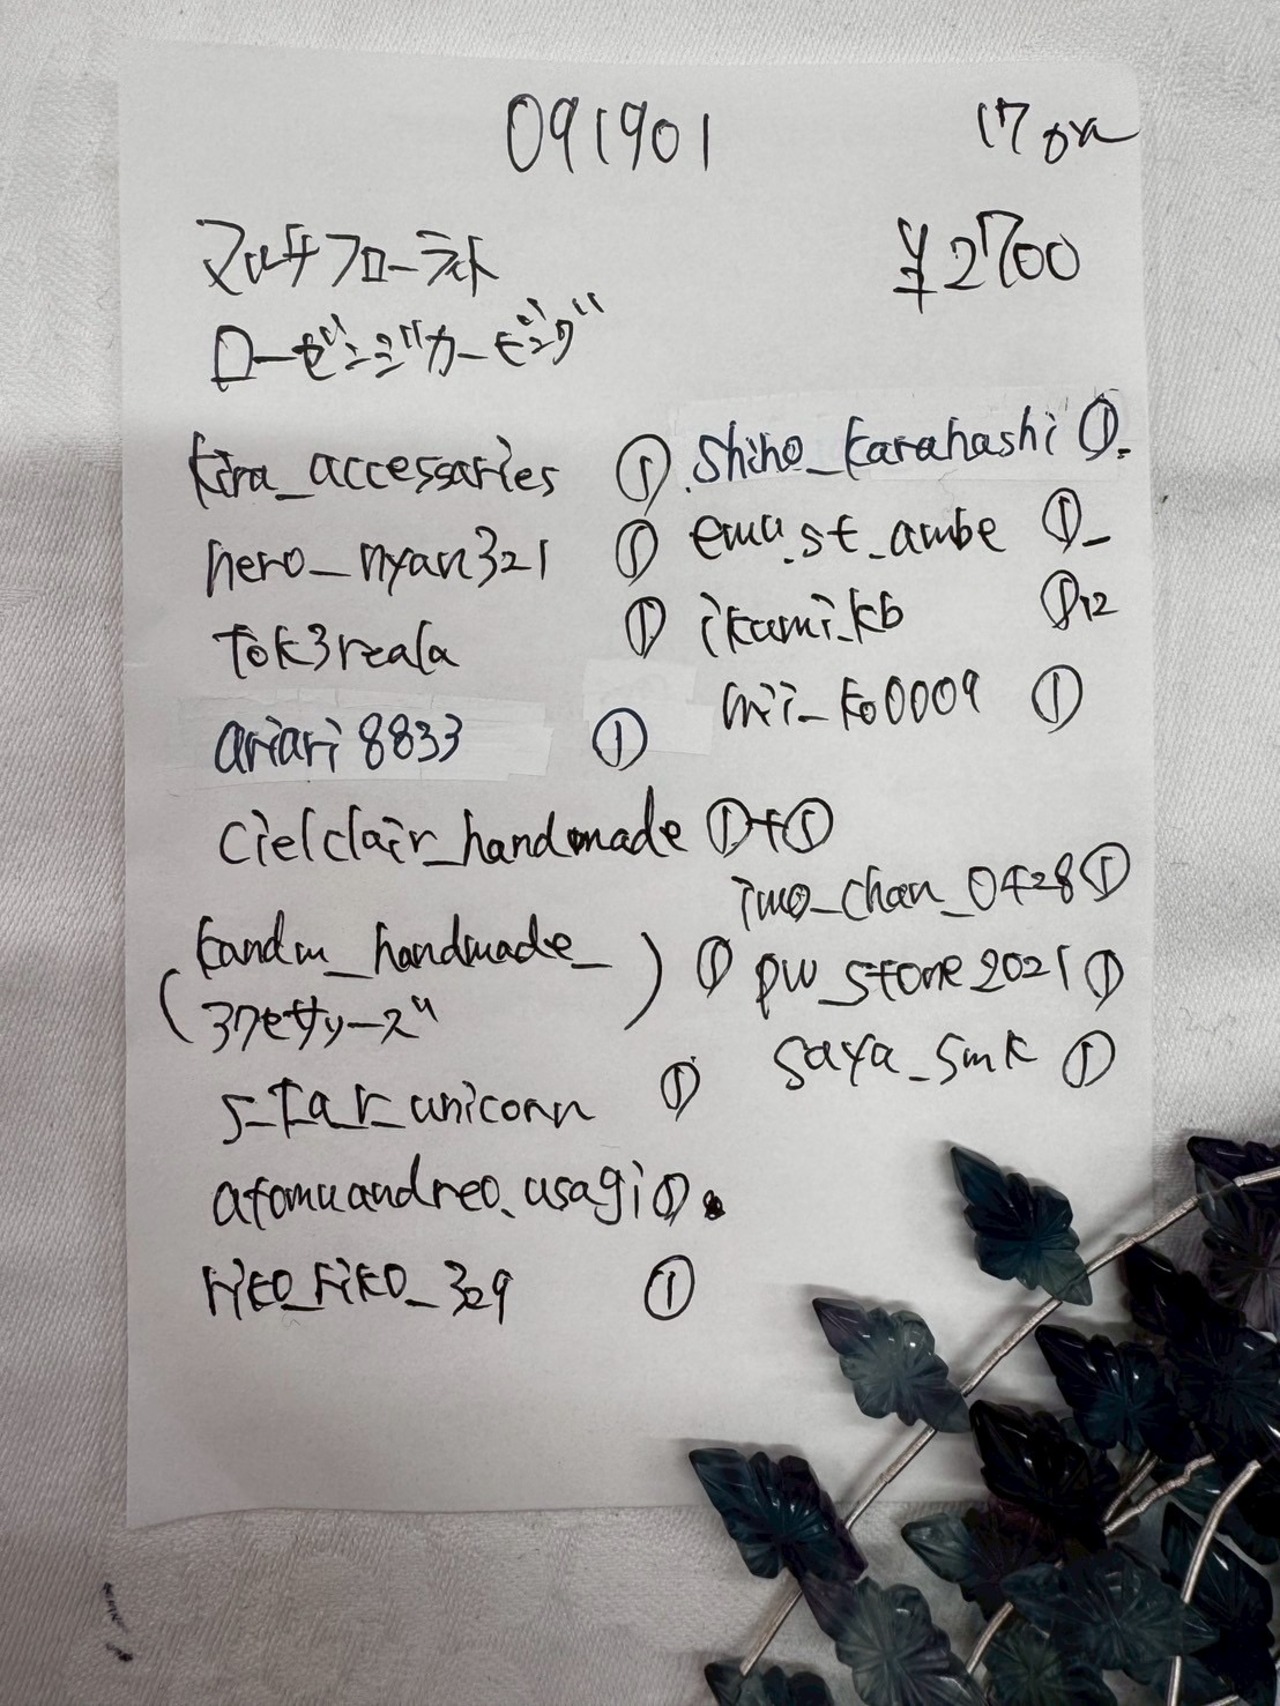 091901
17
マルチフローライト
¥2700
ローゼンジカービング
kira_accessaries ①
hero_nyan321 ①
tok3reala ①
ariari8833 ①
cielclair_handmade ①+①
(kandm_handmade_
37セサリーズ) ①
s_t_a_r_unicorn ①
atomuandreo.usagi ①
riko_riko_329 ①
shiho_karahashi ①
emu.st_ambe ①
ikumi.kb ①
mii_ko0009 ①
imo_chan_0428 ①
pw_stone2021 ①
saya_smk ①